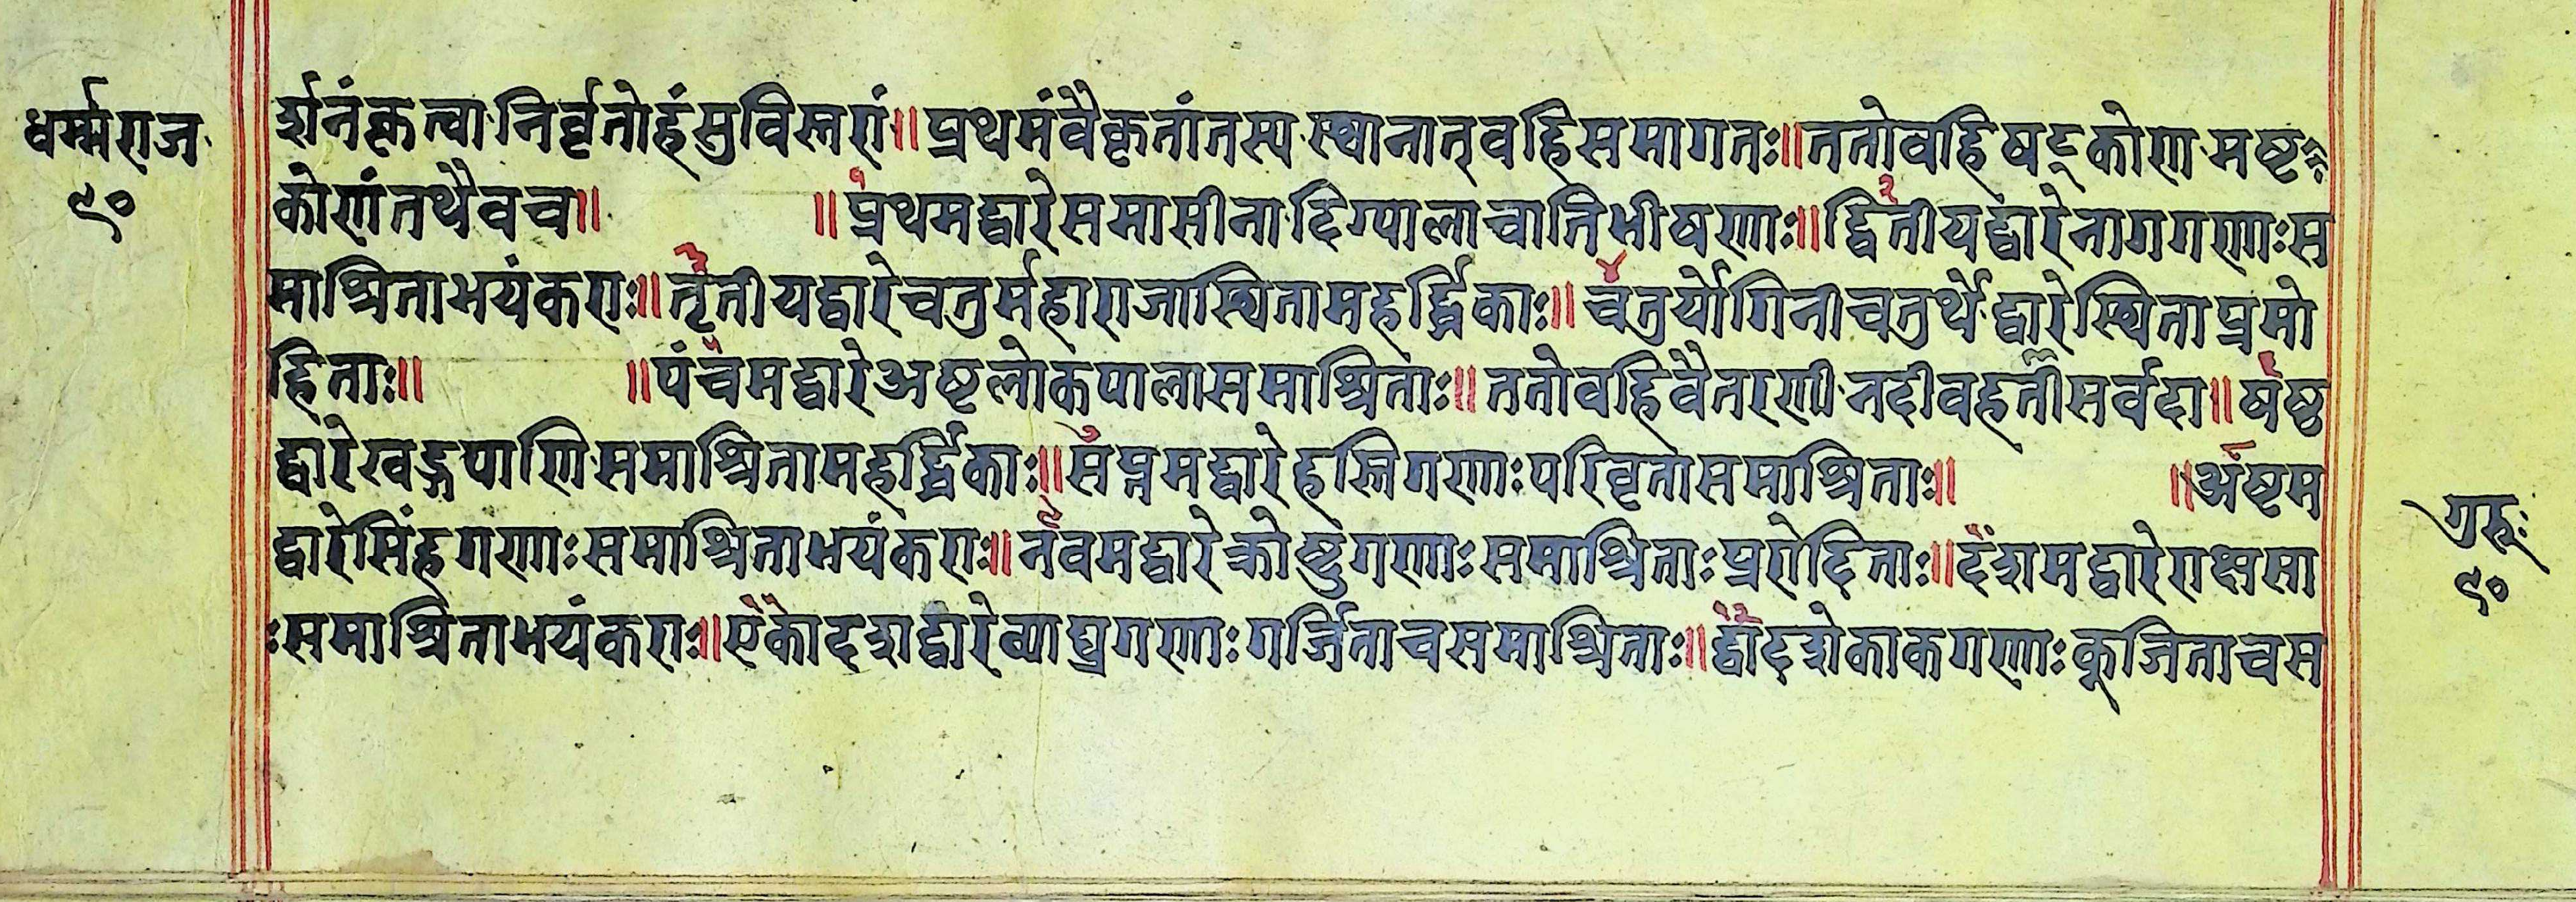 धर्म्मराज
९०
र्शनंकृत्वानिर्वृतोहंसुविस्तरां॥प्रथमंवैकृतांतस्यस्थानात्वहिसमागतः॥ततोवहिषट्कोणमष्ट
कोणंतथैवच॥ ॥प्रथमद्वारेसमासीनादिग्पालाचातिभीषणाः॥द्वितीयद्वारेनागगणाःस
माश्रिताभयंकराः॥तृतीयद्वारेचतुर्महाराजास्थितामहर्द्धिकाः॥चतुर्योगिनीचतुर्थेद्वारेस्थिताप्रमो
हिताः॥ ॥पंचमद्वारेअष्टलोकपालासमाश्रिताः॥ततोवहिवैतरणीनदीवहतीसर्वदा॥षष्ठ
द्वारेखड्गपाणिसमाश्रितामहर्द्धिकाः॥सप्तमद्वारेहस्तिगणाःपरिवृतासमाश्रिताः॥ ॥अष्टम
द्वारेसिंहगणाःसमाश्रिताभयंकराः॥नवमद्वारेक्रोष्टुगणाःसमाश्रिताःप्ररोदिताः॥दशमद्वारेराक्षसा
ःसमाश्रिताभयंकराः॥एकादशद्वारेव्याघ्रगणाःगर्जिताचसमाश्रिताः॥द्वादशेकाकगणाःकूजिताचस
गुरुः
९०